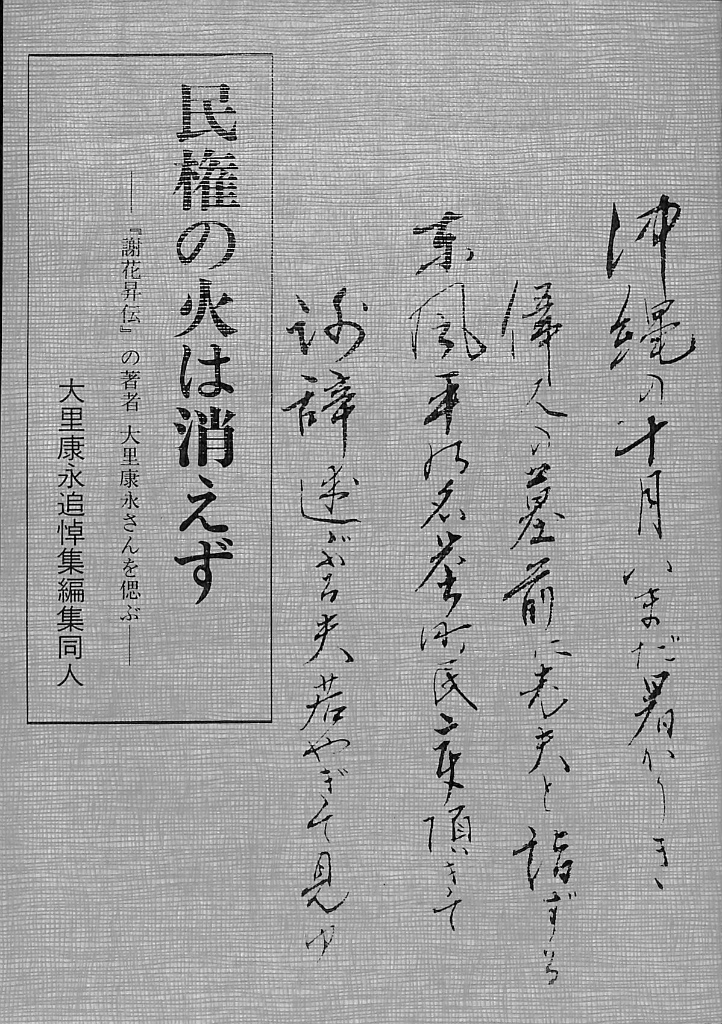 沖縄の十月いまだ暑かりき、
偉人の墓前に老夫と詣ずる
東風平の名誉町民章頂きて
謝辞述ぶる夫若やぎて見ゆ
民権の火は消えず
――『謝花昇伝』の著者 大里康永さんを偲ぶ――
大里康永追悼集編集同人